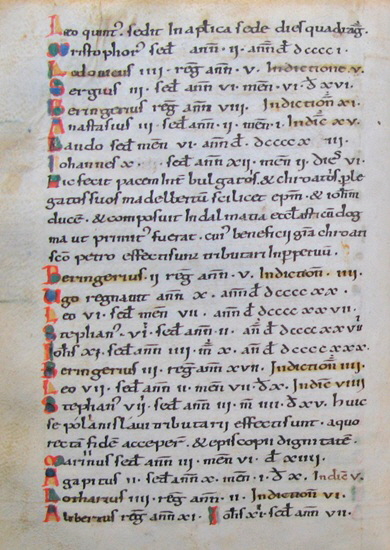 Leo quint'. sedit in aplica sede dies quadrag.
Cristophor' sed ann. ii. anni d dcccc i.
Lodoicus iiii. reg ann. v. Indictione v.
Sergius iii. sed ann vi. men. vi. d xvi.
Beringerius reg ann viii. Indiction xi.
Anastasius iii. sed ann. ii. men. i. Indic xv.
Lando sed men vi. ann d. dcccc x iii.
Iohannes x. sed ann xii. men ii. dies vi.
Hic fecit pacem int bulgaros. & chroatos. p le
gatos suos madelbertu scilicet epm. & iohm
duce. & composuit in dalmatia ecclasticu dog
ma ut primit' fuerat. cui' beneficii gra chroati
sco petro effecti sunt tributari inppetuu.
Beringerius ii reg ann. v. Indiction iiii.
Ugo regnavit ann x. ann d dcccc xx
Leo vi. sed men vii. ann d dcccc xx
Stephan'. vii. sed ann. ii. an d dcccc xx vii
Iohs xi. sed ann iiii. m x. an d dcccc xxx.
Beringerius iii. reg ann xvii. Indiction iiii.
Leo vii. sed ann. ii. men vii. d x. Indic viiii
Stephan' vii. sed ann iii. m iiii. d xv. huic
se polani sclavi tributarii effecti sunt. a quo
recta fide acceper. & episcopii dignitate.
Marinus sed ann iii. men vi. d xiiii.
Agapitus ii. sed ann x. men. i. d x. Indic v.
Lotharius iii. reg ann v. Indiction vi.
Albertus reg ann xi. Iohs xi. sed ann vii.